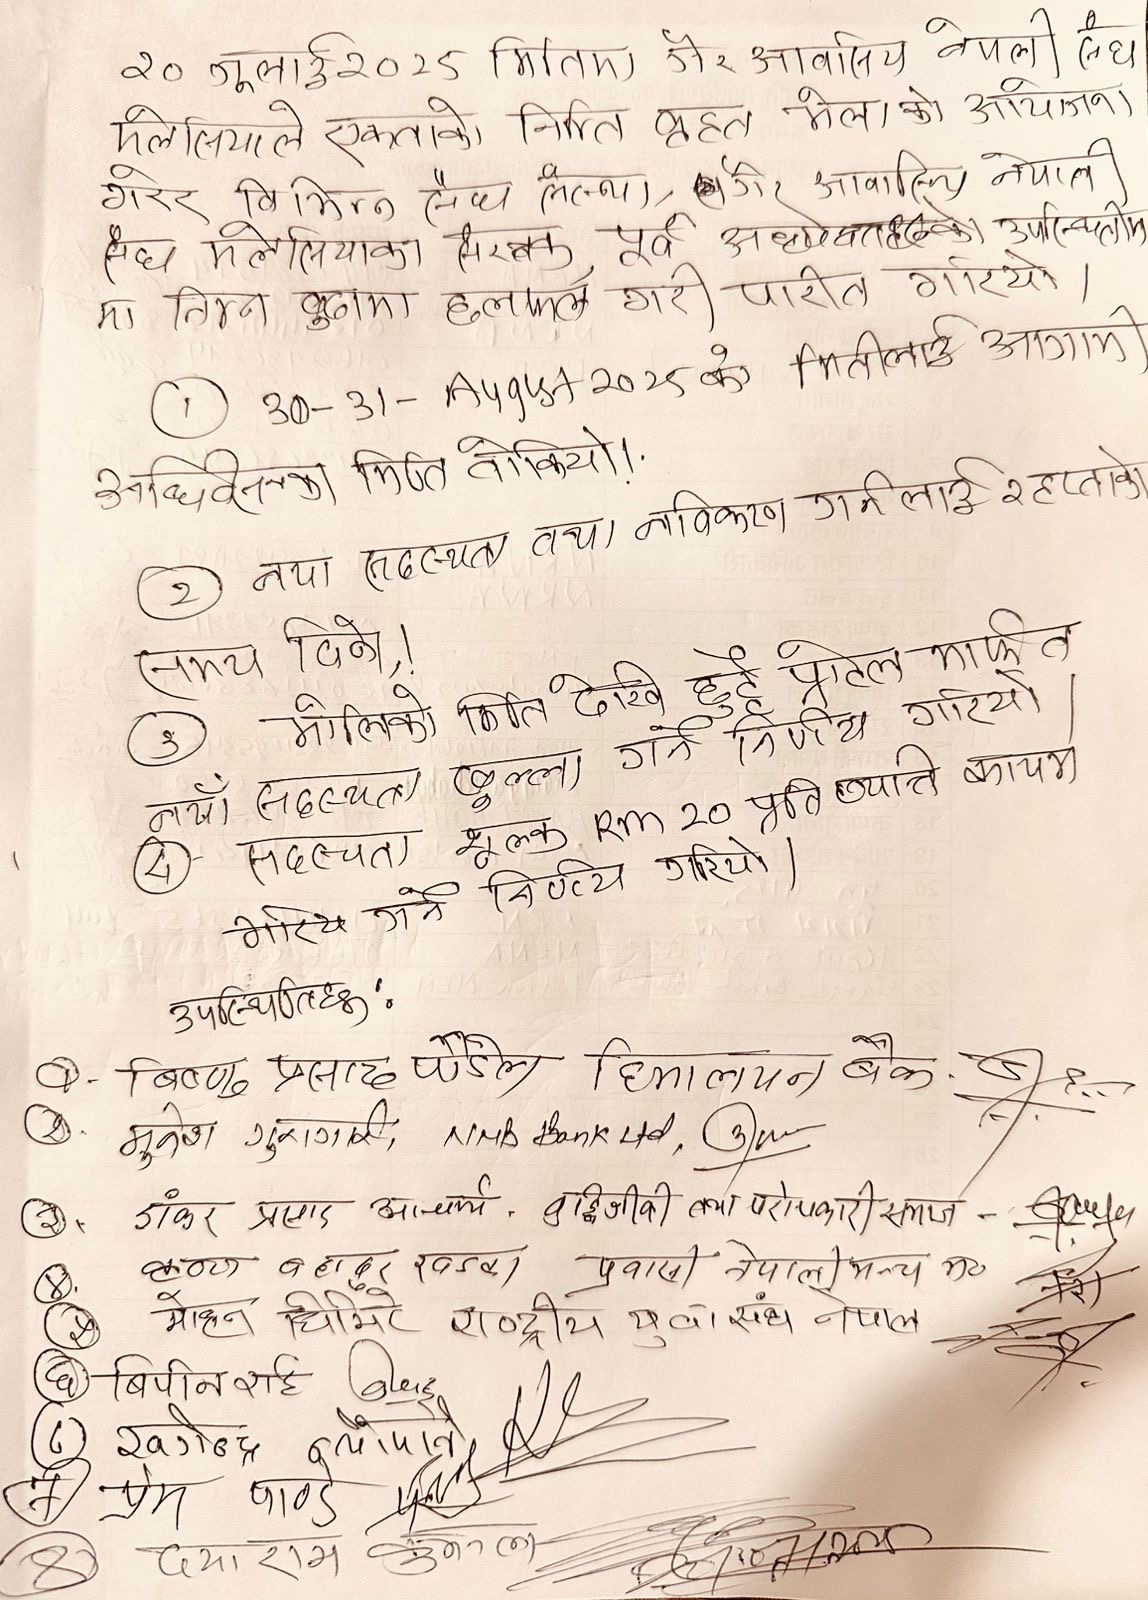 २० जूलाई २०२५ मितिमा गैर आवासिय नेपाली संघ
मलेसियाले एकताको निमित बृहत भेलाको आयोजना
गरेर विभिन्न संघ संस्था, गैर आवासिय नेपाली
संघ मलेसियाका संरक्षक, पूर्व उपस्थितीम
मा निम्न बुदामा छलफल गरी पारीत गरियो।
① 30-31- August २०२५ को मितीलाई आगामी
अधिवेशनका मिति तोकियो।.
② नया सदस्यता तथा नविकरण गर्नलाई २ हप्ताको
समय दिको,।
③ भोलिको मिति देखि छुट्टै पोर्टल मार्फत
नयाँ सदस्यता खुल्ला गर्ने निर्णय गरियो।
④- सदस्यता शूल्क RM 20 प्रति व्यक्ति कायम
गरिय गर्ने निर्णय गरियो।
उपस्थितिहरू:
①- विष्णु प्रसाद पौडेल हिमालयन बैंक.
②. मुकेश NMB Bank Ltd,
③. शंकर प्रसाद आचार्य. बुद्धिजीवी तथा परोपकारी समाज -
④. बहादुर खडका प्रवासी नेपाली मञ्च
⑤ मोहन घिमिरे राष्ट्रीय युवा संघ नेपाल
⑥ विपीन राई
⑦ खगेन्द्र
प्रेम पाण्डे
दयाराम